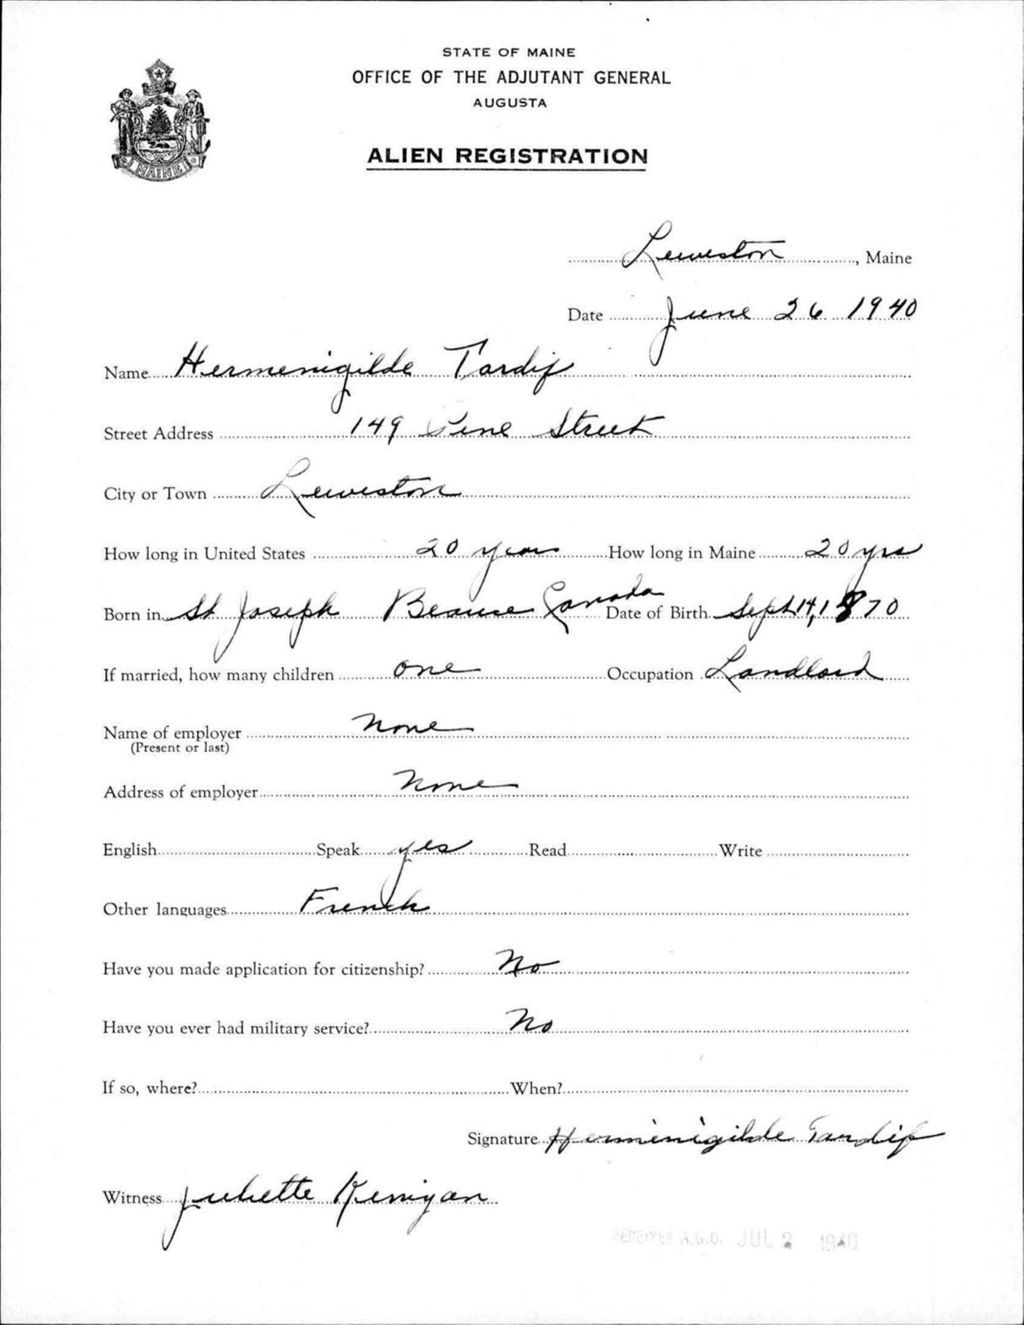 STATE OF MAINE
OFFICE OF THE ADJUTANT GENERAL
AUGUSTA
ALIEN REGISTRATION
MAINE
Lewiston, Maine
Date June 26 1940
Name Hermenigilde Tardif
Street Address 149 Pine Street
City or Town Lewiston
How long in United States 20 years How long in Maine 20 yrs
Born in St Joseph Beause Canada Date of Birth Sept 14, 1870
If married, how many children one Occupation Landlord
Name of employer None
(Present or last)
Address of employer None
English Speak yes Read Write
Other languages French
Have you made application for citizenship? No
Have you ever had military service? No
If so, where? When?
Signature Hermenigilde Tardif
Witness Juliette Kenigan
RECEIVED A.G.O. JUL 2 1940